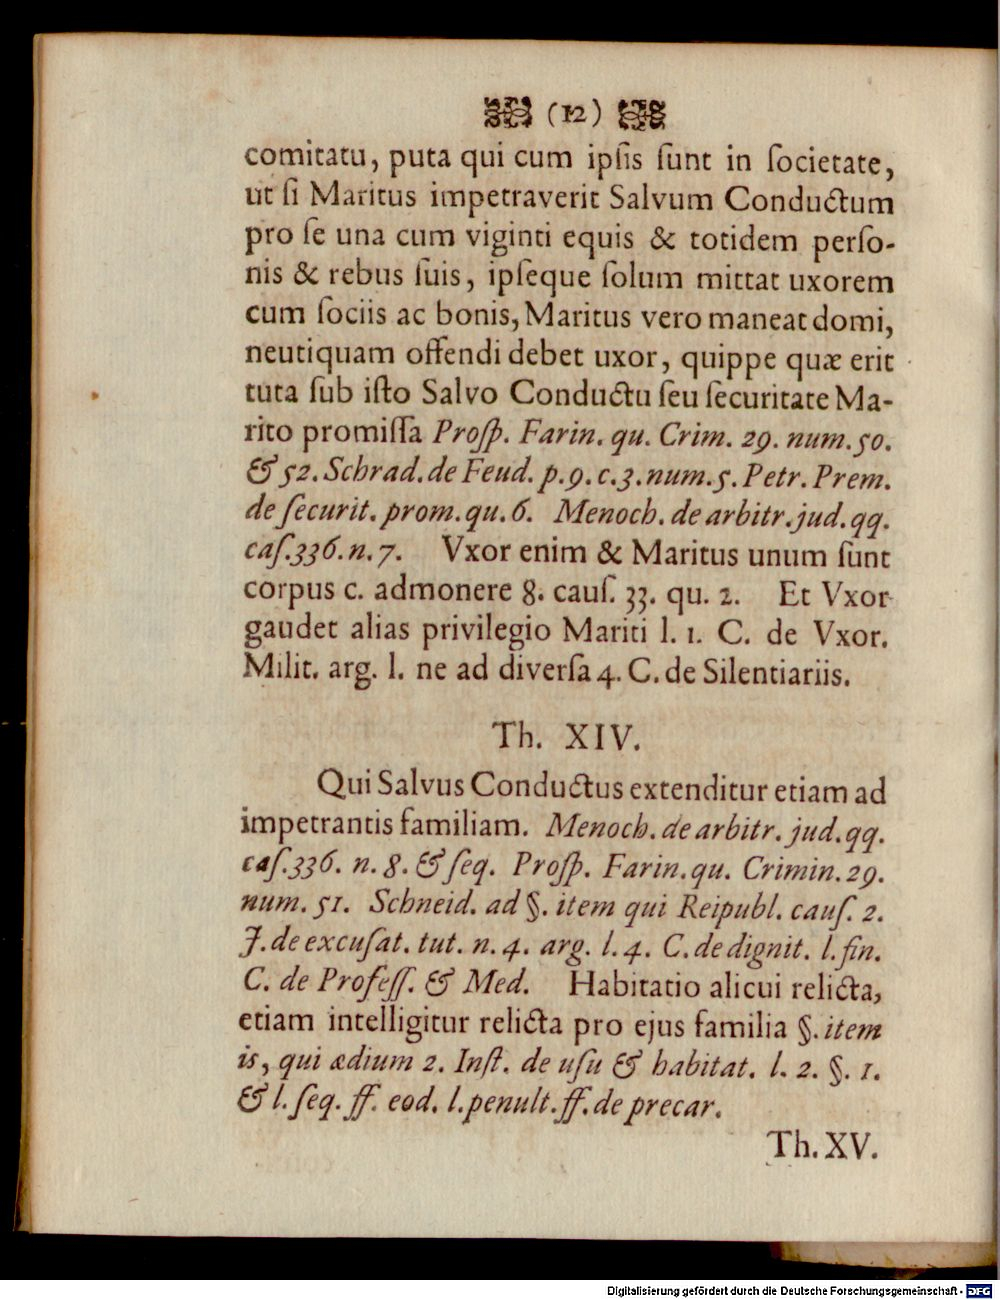 (12)
comitatu, puta qui cum ipſis ſunt in ſocietate,
ut ſi Maritus impetraverit Salvum Conductum
pro ſe una cum viginti equis & totidem perſo-
nis & rebus ſuis, ipſeque ſolum mittat uxorem
cum ſociis ac bonis, Maritus vero maneat domi,
neutiquam offendi debet uxor, quippe quæ erit
tuta ſub iſto Salvo Conductu ſeu ſecuritate Ma-
rito promiſſa Proſp. Farin. qu. Crim. 29. num. 50.
& 52. Schrad. de Feud. p. 9. c. 3. num. 5. Petr. Prem.
de ſecurit. prom. qu. 6. Menoch. de arbitr. jud. qq.
caſ. 336. n. 7. Vxor enim & Maritus unum ſunt
corpus c. admonere 8. cauſ. 33. qu. 2. Et Vxor
gaudet alias privilegio Mariti l. 1. C. de Vxor.
Milit. arg. l. ne ad diverſa 4. C. de Silentiariis.
Th. XIV.
Qui Salvus Conductus extenditur etiam ad
impetrantis familiam. Menoch. de arbitr. jud. qq.
caſ. 336. n. 8. & ſeq. Proſp. Farin. qu. Crimin. 29.
num. 51. Schneid. ad §. item qui Reipubl. cauſ. 2.
J. de excuſat. tut. n. 4. arg. l. 4. C. de dignit. l. fin.
C. de Profeſſ. & Med. Habitatio alicui relicta,
etiam intelligitur relicta pro ejus familia §. item
is, qui ædium 2. Inſt. de uſu & habitat. l. 2. §. 1.
& l. ſeq. ff. eod. l. penult. ff. de precar.
Th. XV.
Digitalisierung gefördert durch die Deutsche Forschungsgemeinschaft - DFG